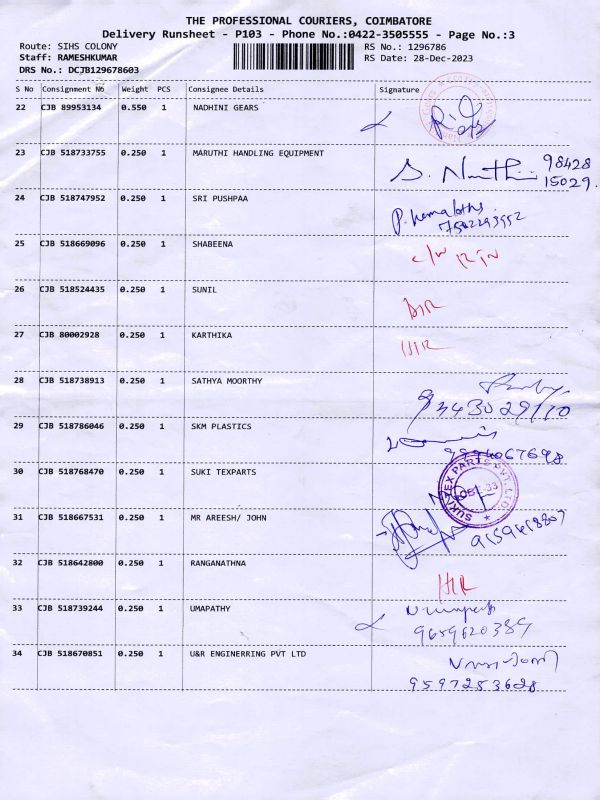 THE PROFESSIONAL COURIERS, COIMBATORE
Delivery Runsheet - P103 - Phone No.:0422-3505555 - Page No.:3
Route: SIHS COLONY RS No.: 1296786
Staff: RAMESHKUMAR RS Date: 28-Dec-2023
DRS No.: DCJB129678603
S No Consignment No Weight PCS Consignee Details Signature
22 CJB 89953134 0.550 1 NADHINI GEARS
23 CJB 518733755 0.250 1 MARUTHI HANDLING EQUIPMENT 98428
15029.
24 CJB 518747952 0.250 1 SRI PUSHPAA
25 CJB 518669096 0.250 1 SHABEENA
26 CJB 518524435 0.250 1 SUNIL
27 CJB 80002928 0.250 1 KARTHIKA
28 CJB 518738913 0.250 1 SATHYA MOORTHY
29 CJB 518786046 0.250 1 SKM PLASTICS
30 CJB 518768470 0.250 1 SUKI TEXPARTS
31 CJB 518667531 0.250 1 MR AREESH/ JOHN
32 CJB 518642800 0.250 1 RANGANATHNA
33 CJB 518739244 0.250 1 UMAPATHY
9659620389
34 CJB 518670851 0.250 1 U&R ENGINERRING PVT LTD
9597253628